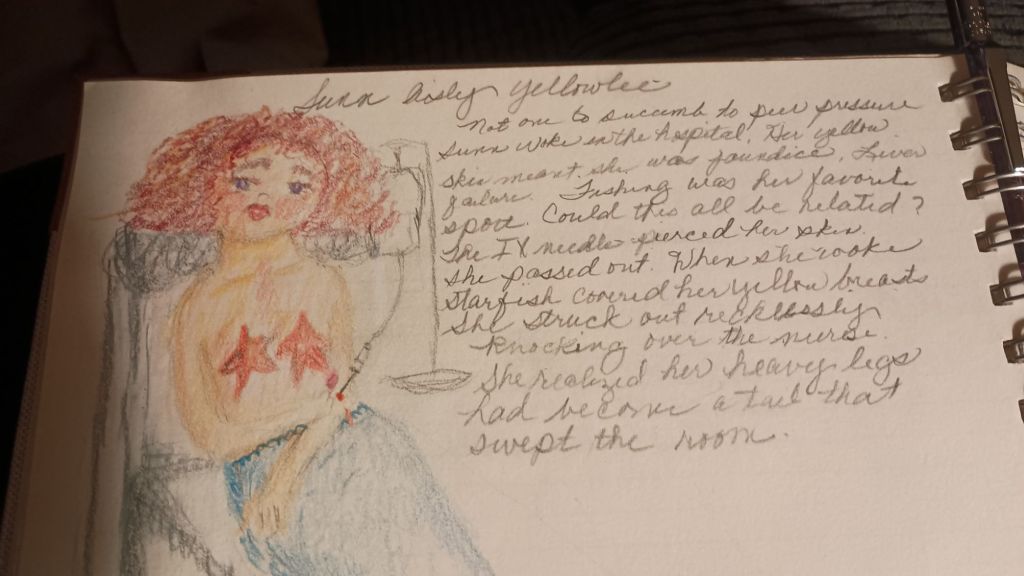 Sunn Aisly Yellowlee
Not one to succumb to peer pressure
Sunn woke in the hospital. Her yellow
skin meant she was jaundice. Liver
failure. Fishing was her favorite
sport. Could this all be related?
The IV needle pierced her skin.
She passed out. When she woke
starfish covered her yellow breasts
She struck out recklessly
knocking over the nurse.
She realized her heavy legs
had become a tail that
swept the room.